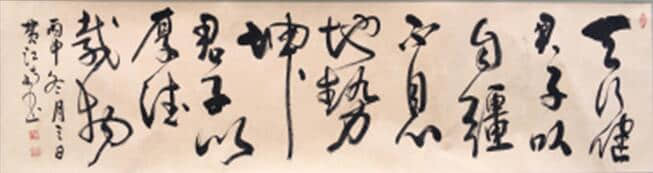 天行健
君子以
自彊
不息
地勢
坤
君子以
厚德
載物
丙申冬月三日